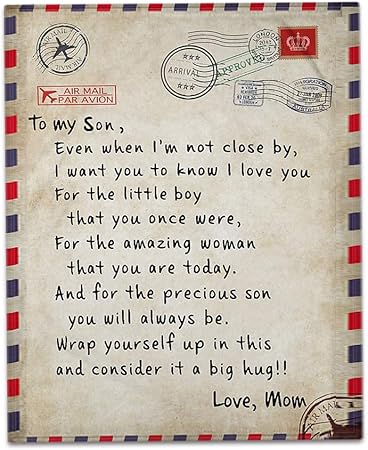 AIR MAIL
ARRIVAL
APPROVED
LONDON
AIR MAIL
PAR AVION
To my Son,
Even when I'm not close by,
I want you to know I love you
For the little boy
that you once were,
For the amazing woman
that you are today.
And for the precious son
you will always be.
Wrap yourself up in this
and consider it a big hug!!
Love, Mom
AIR MAIL